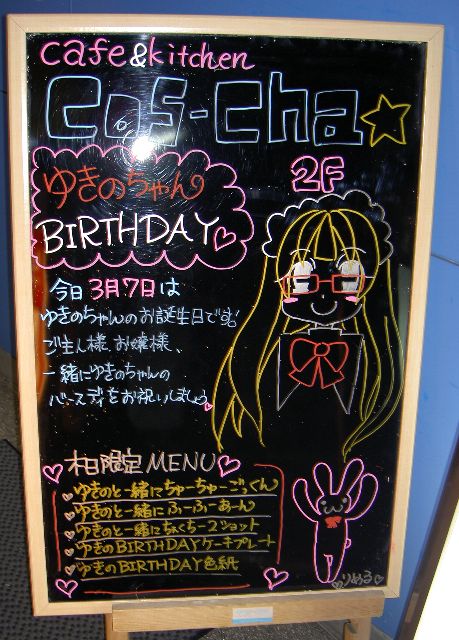 cafe&kitchen
Cos-Cha☆
2F
ゆきのちゃん
BIRTHDAY♡
今日3月7日は
ゆきのちゃんのお誕生日です!
ご主人様、お嬢様、
一緒にゆきのちゃんの
バースデイをお祝いしましょう♥
♡本日限定MENU♡
♥ゆきのと一緒にちゅーちゅーごっくん
♥ゆきのと一緒にふーふーあーん
♥ゆきのと一緒にちぇくちー2ショット
♥ゆきのBIRTHDAYケーキプレート
♥ゆきのBIRTHDAY色紙
♡りめる♡